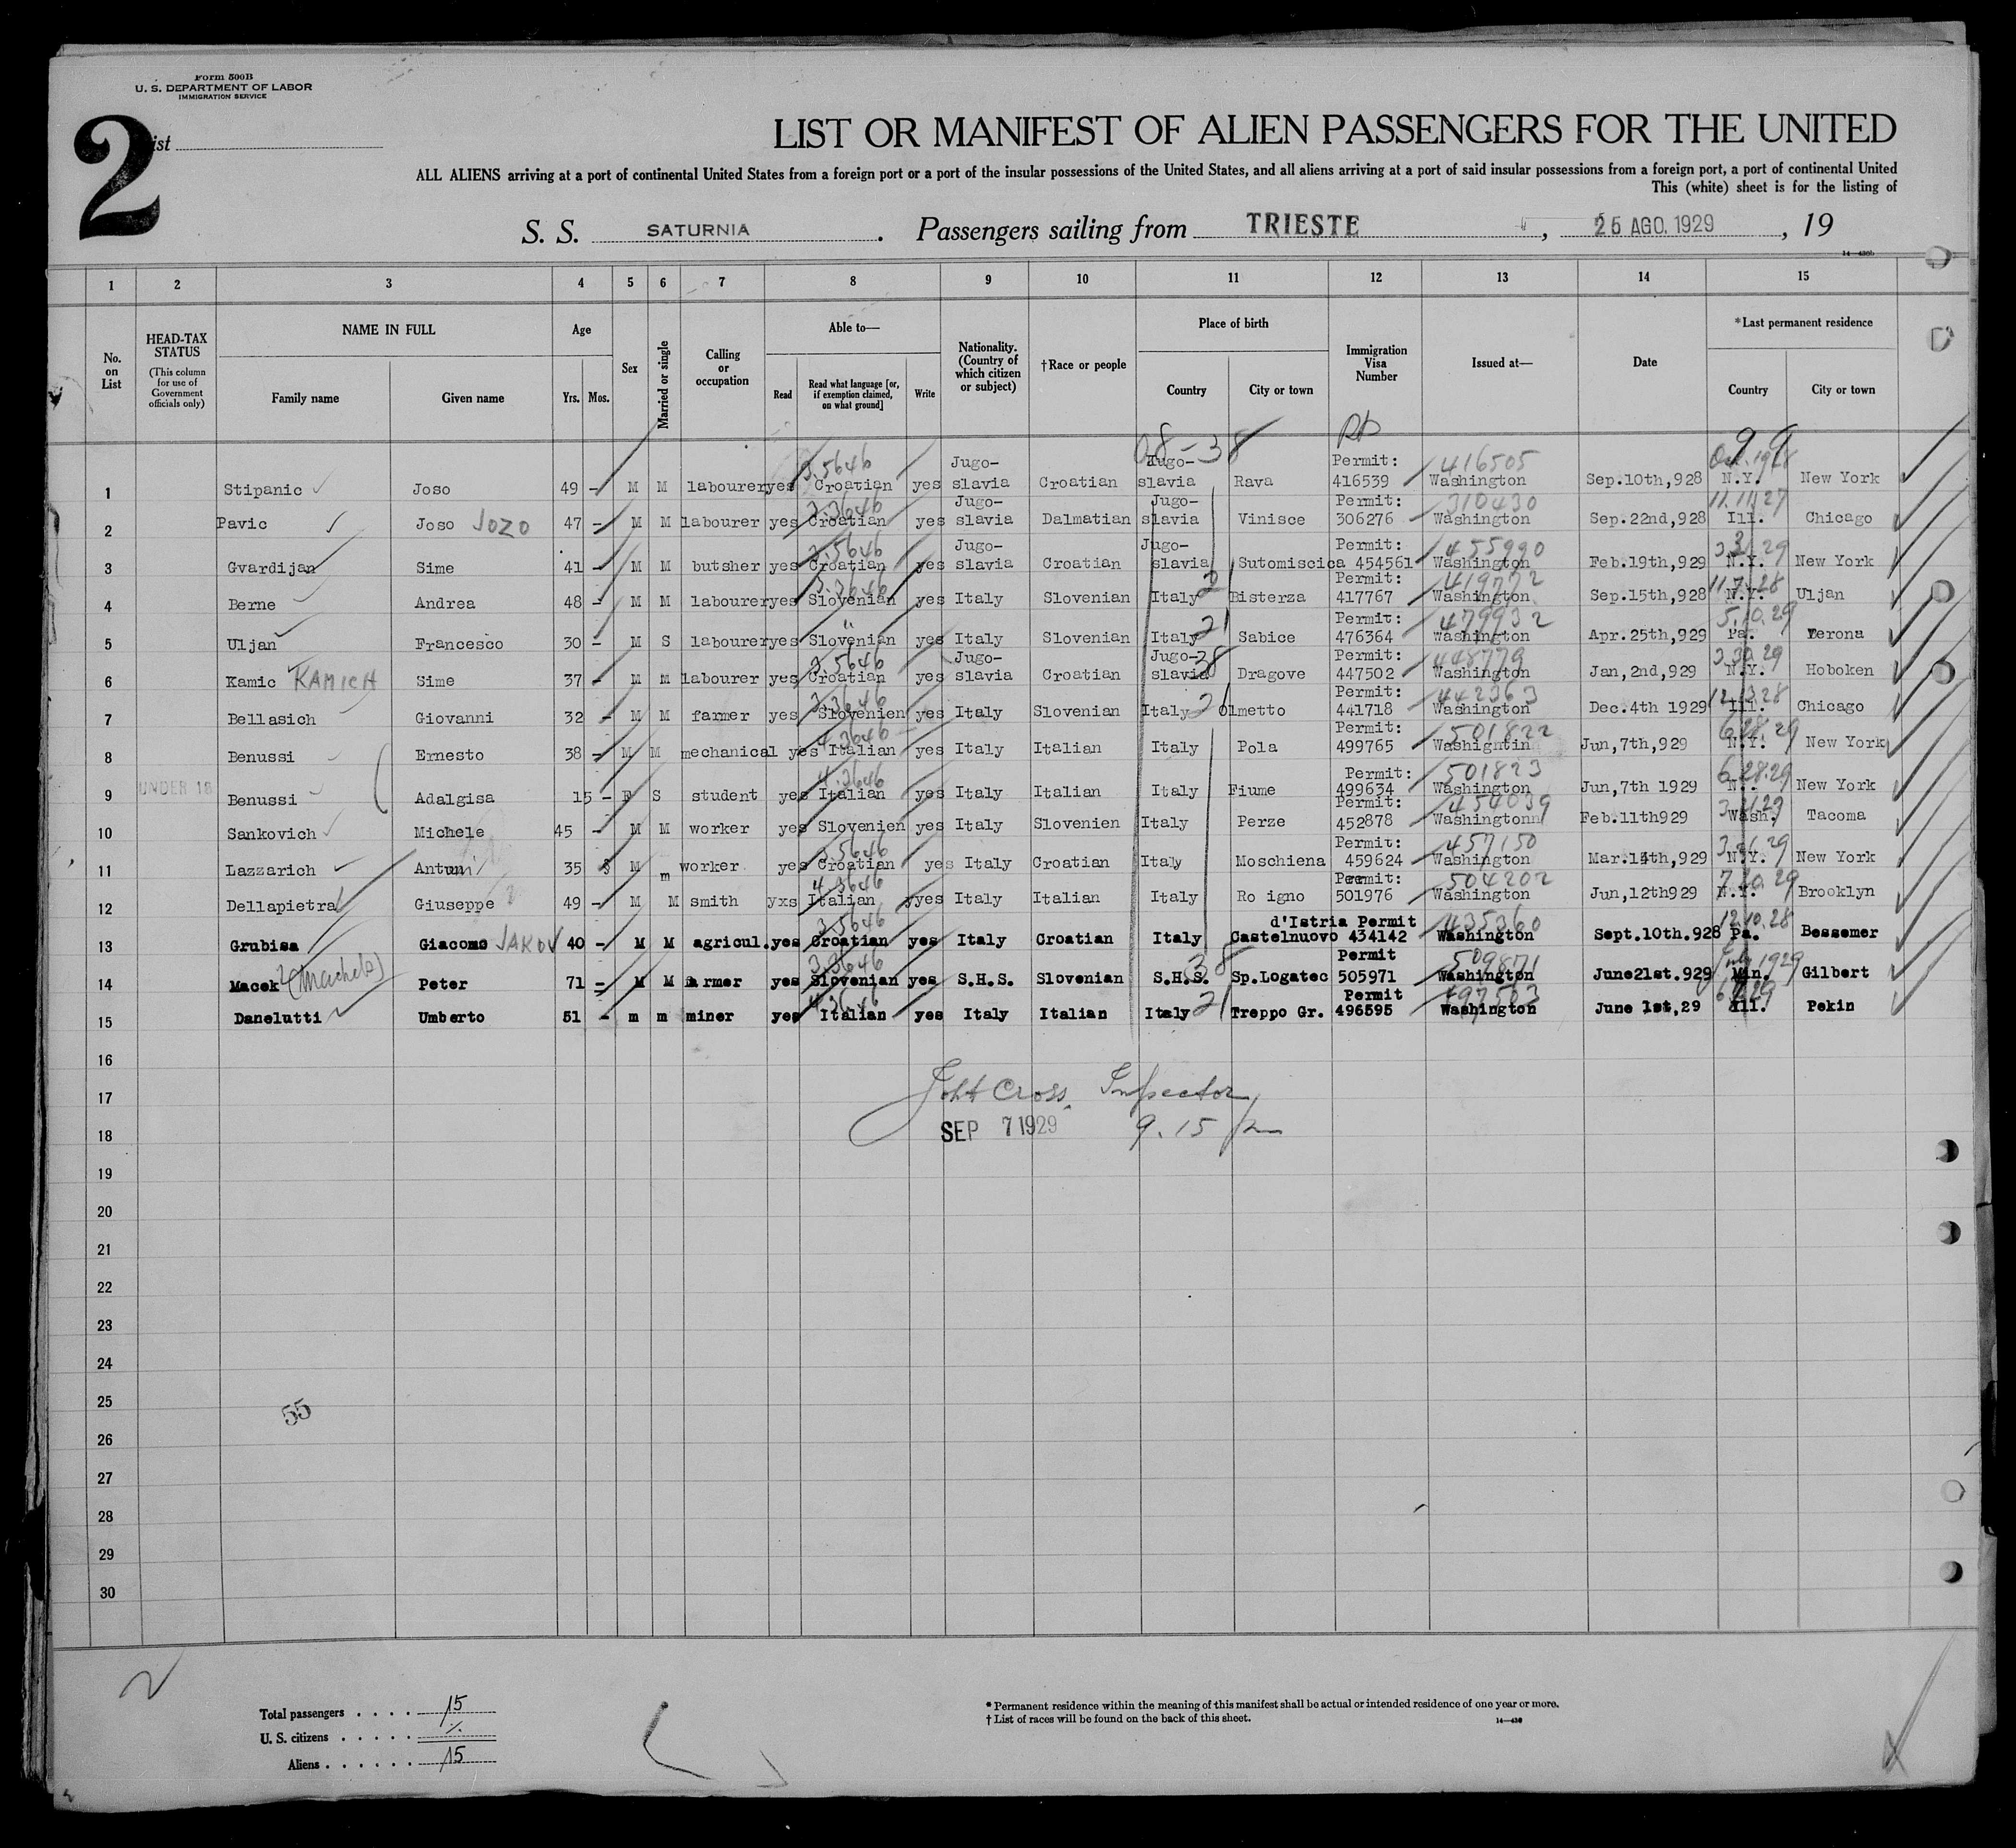 Form 500B
U. S. DEPARTMENT OF LABOR
IMMIGRATION SERVICE
2
ist
LIST OR MANIFEST OF ALIEN PASSENGERS FOR THE UNITED
ALL ALIENS arriving at a port of continental United States from a foreign port or a port of the insular possessions of the United States, and all aliens arriving at a port of said insular possessions from a foreign port, a port of continental United
This (white) sheet is for the listing of
S. S. SATURNIA. Passengers sailing from TRIESTE, 25 AGO. 1929, 19
14—430b
1 2 3 4 5 6 7 8 9 10 11 12 13 14 15
No. on List
HEAD-TAX STATUS (This column for use of Government officials only)
NAME IN FULL Family name Given name
Age Yrs. Mos.
Sex
Married or single
Calling or occupation
Able to— Read Read what language [or, if exemption claimed, on what ground] Write
Nationality. (Country of which citizen or subject)
†Race or people
Place of birth Country City or town
Immigration Visa Number
Issued at—
Date
*Last permanent residence Country City or town
08-38 99
3.5646 Jugo- Jugo- Permit: 416505 Oct. 1928
1 Stipanic Joso 49 - M M labourer yes Croatian yes slavia Croatian slavia Rava 416539 Washington Sep.10th,928 N.Y. New York
3.3646 Jugo- Jugo- Permit: 310430 11.11.27
2 Pavic Joso JOZO 47 - M M labourer yes Croatian yes slavia Dalmatian slavia Vinisce 306276 Washington Sep.22nd,928 Ill. Chicago
3.5646 Jugo- Jugo- Permit: 455990
3 Gvardijan Sime 41 - M M butsher yes Croatian yes slavia Croatian slavia Sutomiscica 454561 Washington Feb.19th,929 N.Y. New York
3.3646 21 Permit: 419772 11.7.28
4 Berne Andrea 48 - M M labourer yes Slovenian yes Italy Slovenian Italy Bisterza 417767 Washington Sep.15th,928 N.Y. Uljan
" 21 Permit: 479932 5.10.29
5 Uljan Francesco 30 - M S labourer yes Slovenian yes Italy Slovenian Italy Sabice 476364 Washington Apr.25th,929 Pa. Verona
3.5646 Jugo- Jugo- 38 Permit: 448779 3.30.29
6 Kamic KAMICH Sime 37 - M M labourer yes Croatian yes slavia Croatian slavia Dragove 447502 Washington Jan,2nd,929 N.Y. Hoboken
3.3646 21 Permit: 442363 12.13.28
7 Bellasich Giovanni 32 - M M farmer yes Slovenien yes Italy Slovenian Italy Olmetto 441718 Washington Dec.4th 1929 Ill. Chicago
4.3646 Permit: 501822 6.28.29
8 Benussi Ernesto 38 - M M mechanical yes Italian yes Italy Italian Italy Pola 499765 Washigntin Jun,7th,929 N.Y. New York
UNDER 16 4.3646 Permit: 501823 6.28.29
9 Benussi Adalgisa 15 - F S student yes Italian yes Italy Italian Italy Fiume 499634 Washington Jun,7th 1929 N.Y. New York
Permit: 454039
10 Sankovich Michele 45 - M M worker yes Slovenien yes Italy Slovenien Italy Perze 452878 Washingtonn Feb.11th929 Wash. Tacoma
3.5646 Permit: 457150 3.26.29
11 Lazzarich Antuni 35 M m worker yes Croatian yes Italy Croatian Italy Moschiena 459624 Washington Mar.14th,929 N.Y. New York
4.3646 Permit: 504202 7.10.29
12 Dellapietra Giuseppe 49 - M M smith yxs Italian yyes Italy Italian Italy Ro igno 501976 Washington Jun,12th929 N.Y. Brooklyn
3.5646 d'Istria Permit 435360 12.10.28
13 Grubisa Giacomo JAKOV 40 - M M agricul. yes Croatian yes Italy Croatian Italy Castelnuovo 434142 Washington Sept.10th.928 Pa. Bessemer
3.3646 38 Permit 509871 July 1929
14 Macek Peter 71 - M M farmer yes Slovenian yes S.H.S. Slovenian S.H.S. Sp.Logatec 505971 Washington June21st.929 Min. Gilbert
4.3646 21 Permit 497503
15 Danelutti Umberto 51 - m m miner yes Italian yes Italy Italian Italy Treppo Gr. 496595 Washington June 1st,29 Ill. Pekin
16
17 Cross, Inspector
18 SEP 7 1929 9.15
19
20
21
22
23
24
25
55
26
27
28
29
30
Total passengers . . . . 15
U. S. citizens . . . . .
Aliens . . . . . . 15
* Permanent residence within the meaning of this manifest shall be actual or intended residence of one year or more.
† List of races will be found on the back of this sheet.
14—430